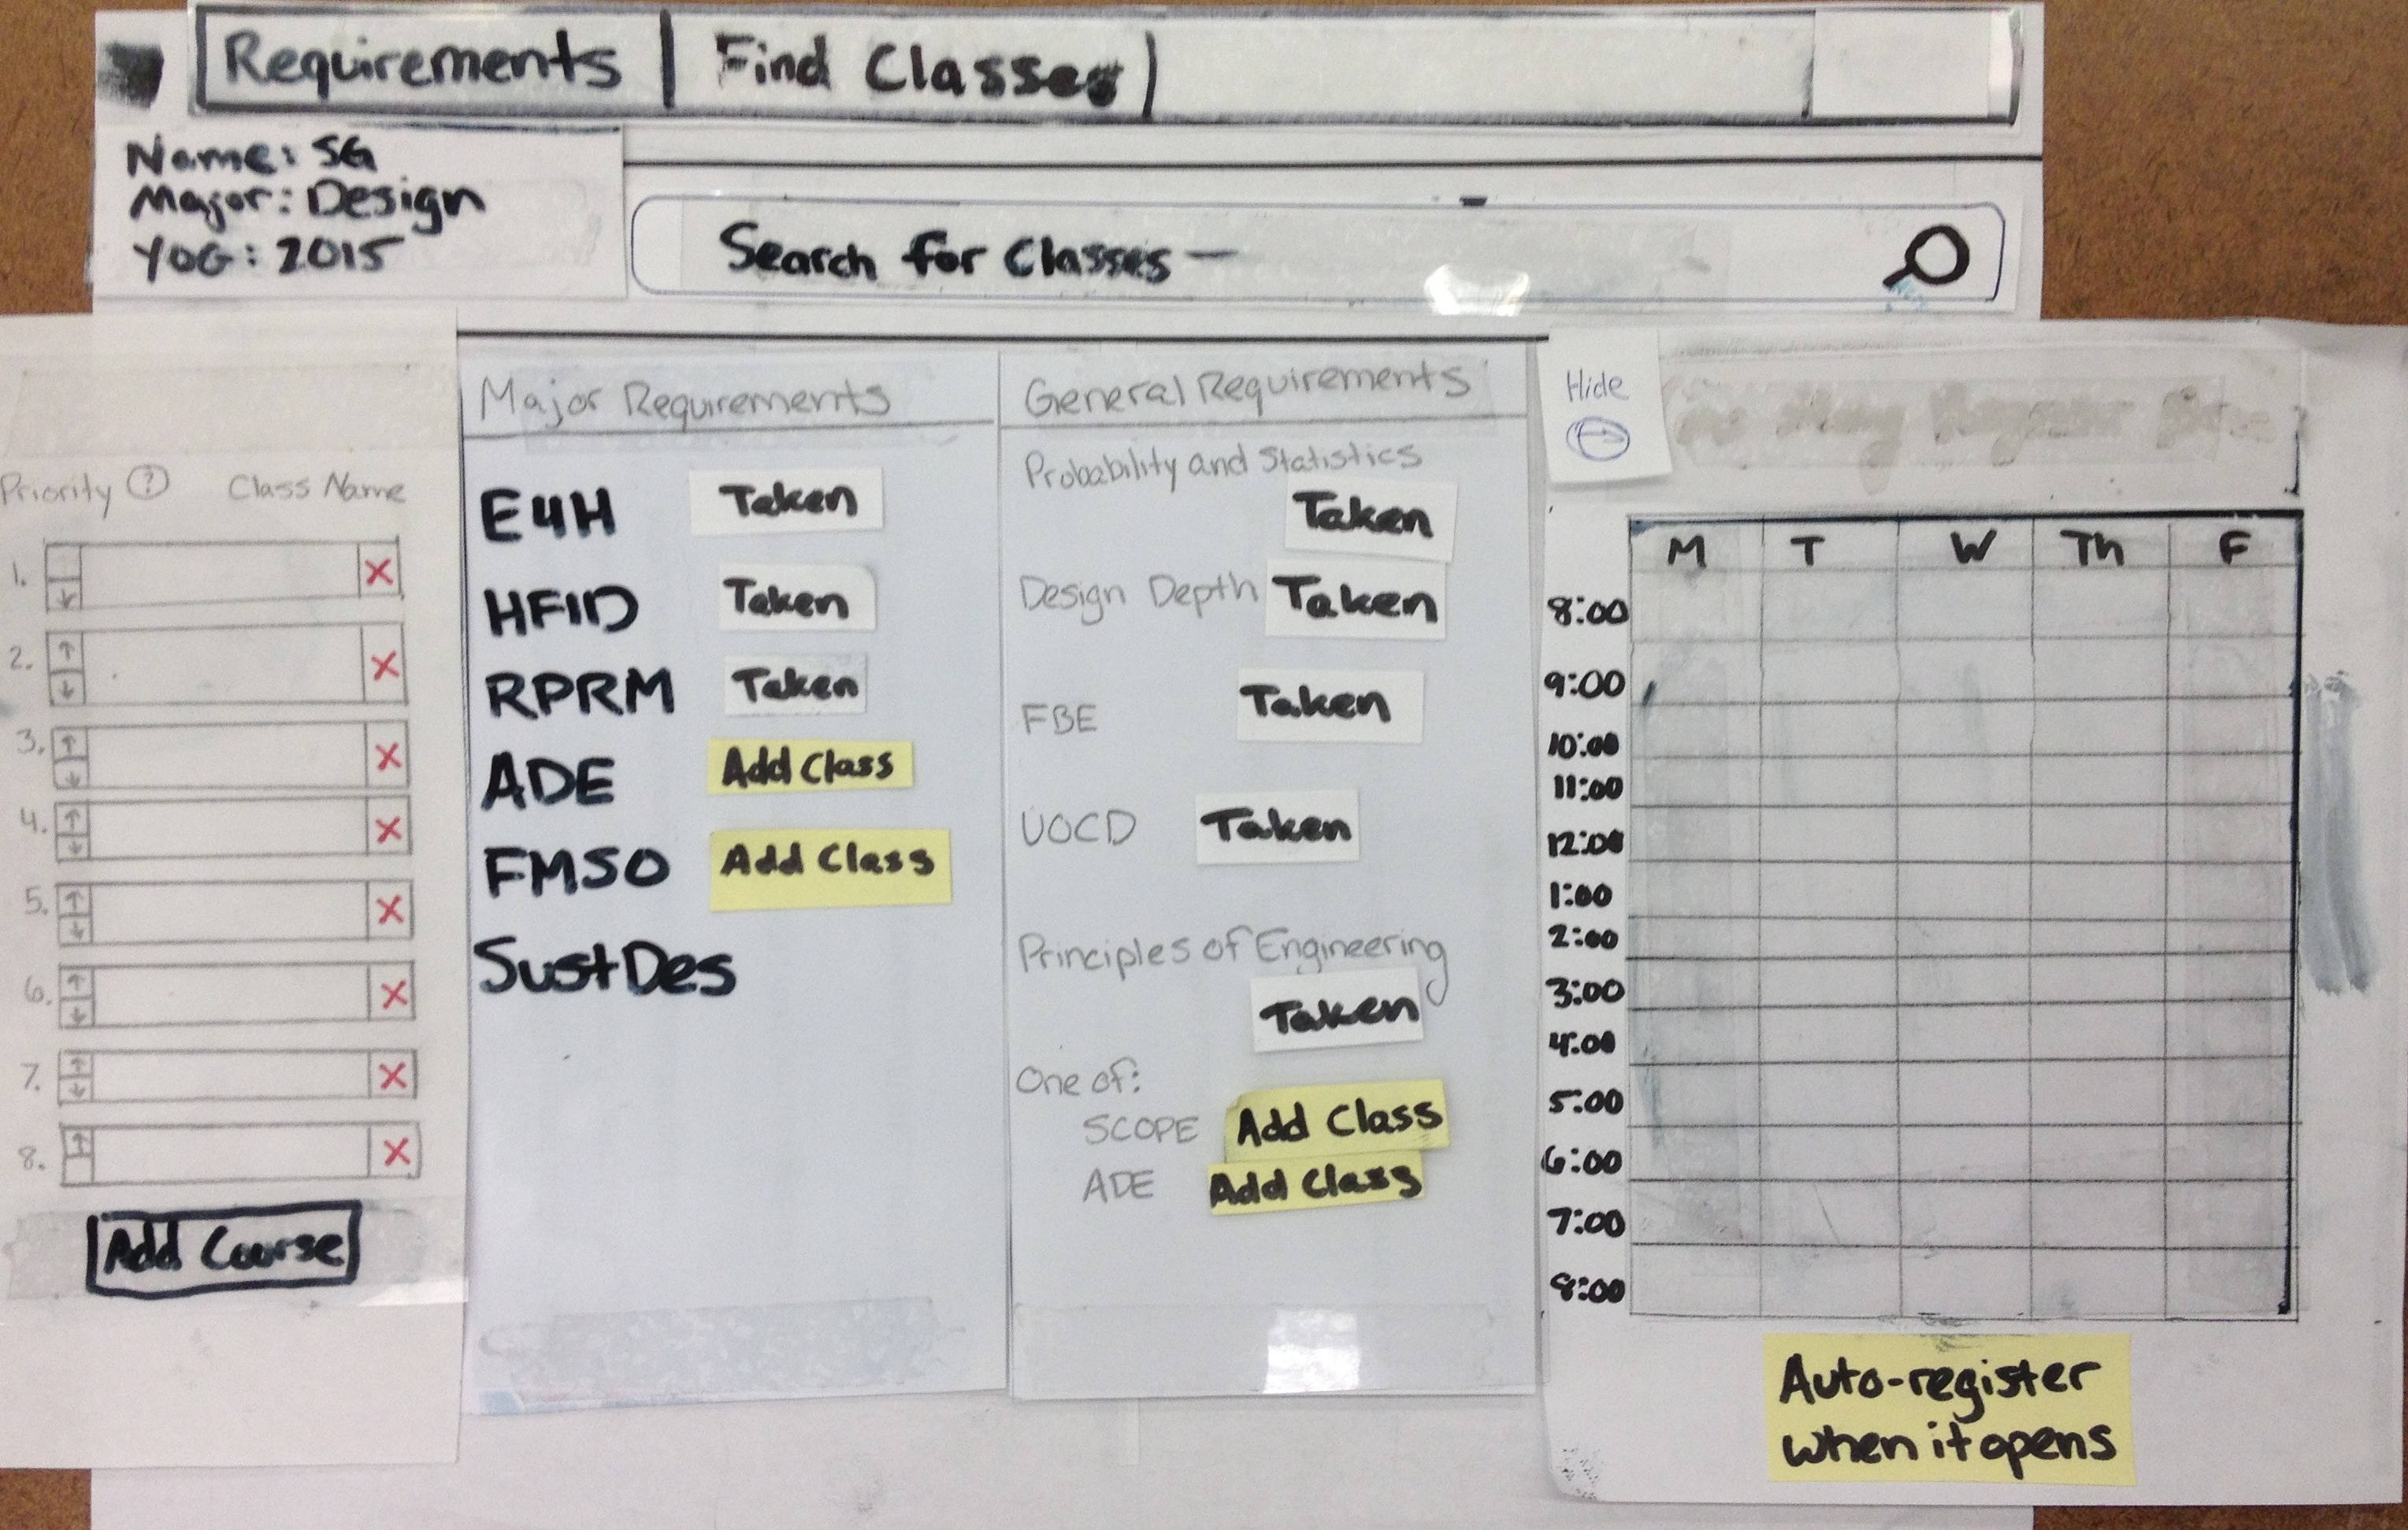 Requirements | Find Classes
Name: SG
Major: Design
YOG: 2015
Search for Classes —
Priority ? Class Name
1.
2.
3.
4.
5.
6.
7.
8.
Add Course
Major Requirements
E4H Taken
HFID Taken
RPRM Taken
ADE Add Class
FMSO Add Class
SustDes
General Requirements
Probability and Statistics
Taken
Design Depth Taken
FBE Taken
UOCD Taken
Principles of Engineering
Taken
One of:
SCOPE Add Class
ADE Add Class
Hide
M T W Th F
8:00
9:00
10:00
11:00
12:00
1:00
2:00
3:00
4:00
5:00
6:00
7:00
8:00
Auto-register
when it opens